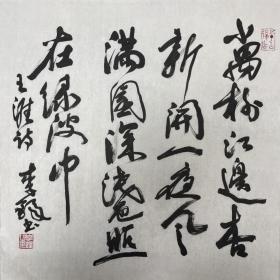 萬樹江邊杏
新開一夜風
滿園深淺色照
在綠波中
王涯詩
李